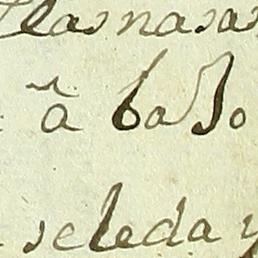 llas nasas
â baxo
se le da y